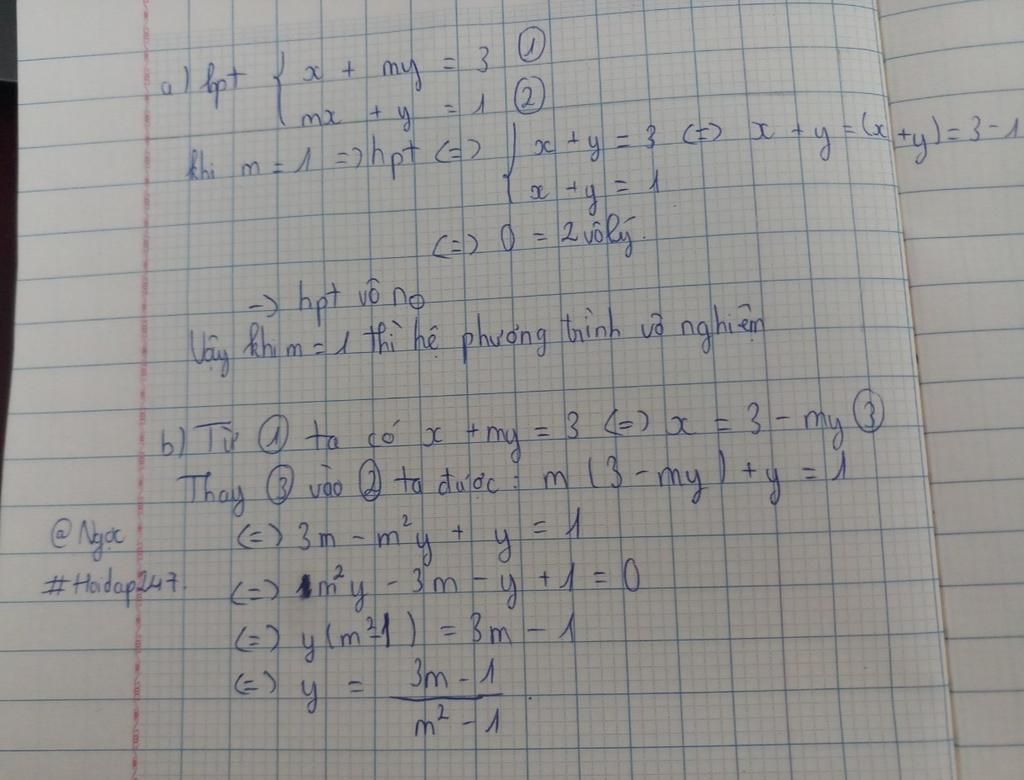 a) hpt { x + my = 3 ①
mx + y = 1 ②
khi m = 1 => hpt (=) { x + y = 3 (=) x + y = (x + y) = 3 - 1
x + y = 1
(=) 0 = 2 vô lý.
-> hpt vô no
Vậy khi m = 1 thì hệ phương trình vô nghiệm
b) Từ ① ta có x + my = 3 (=) x = 3 - my ③
Thay ③ vào ② ta được: m (3 - my) + y = 1
@Ngọc (=) 3m - m²y + y = 1
#Hoidap247. (=) m²y - 3m - y + 1 = 0
(=) y(m²-1) = 3m - 1
(=) y = 3m - 1
m² - 1